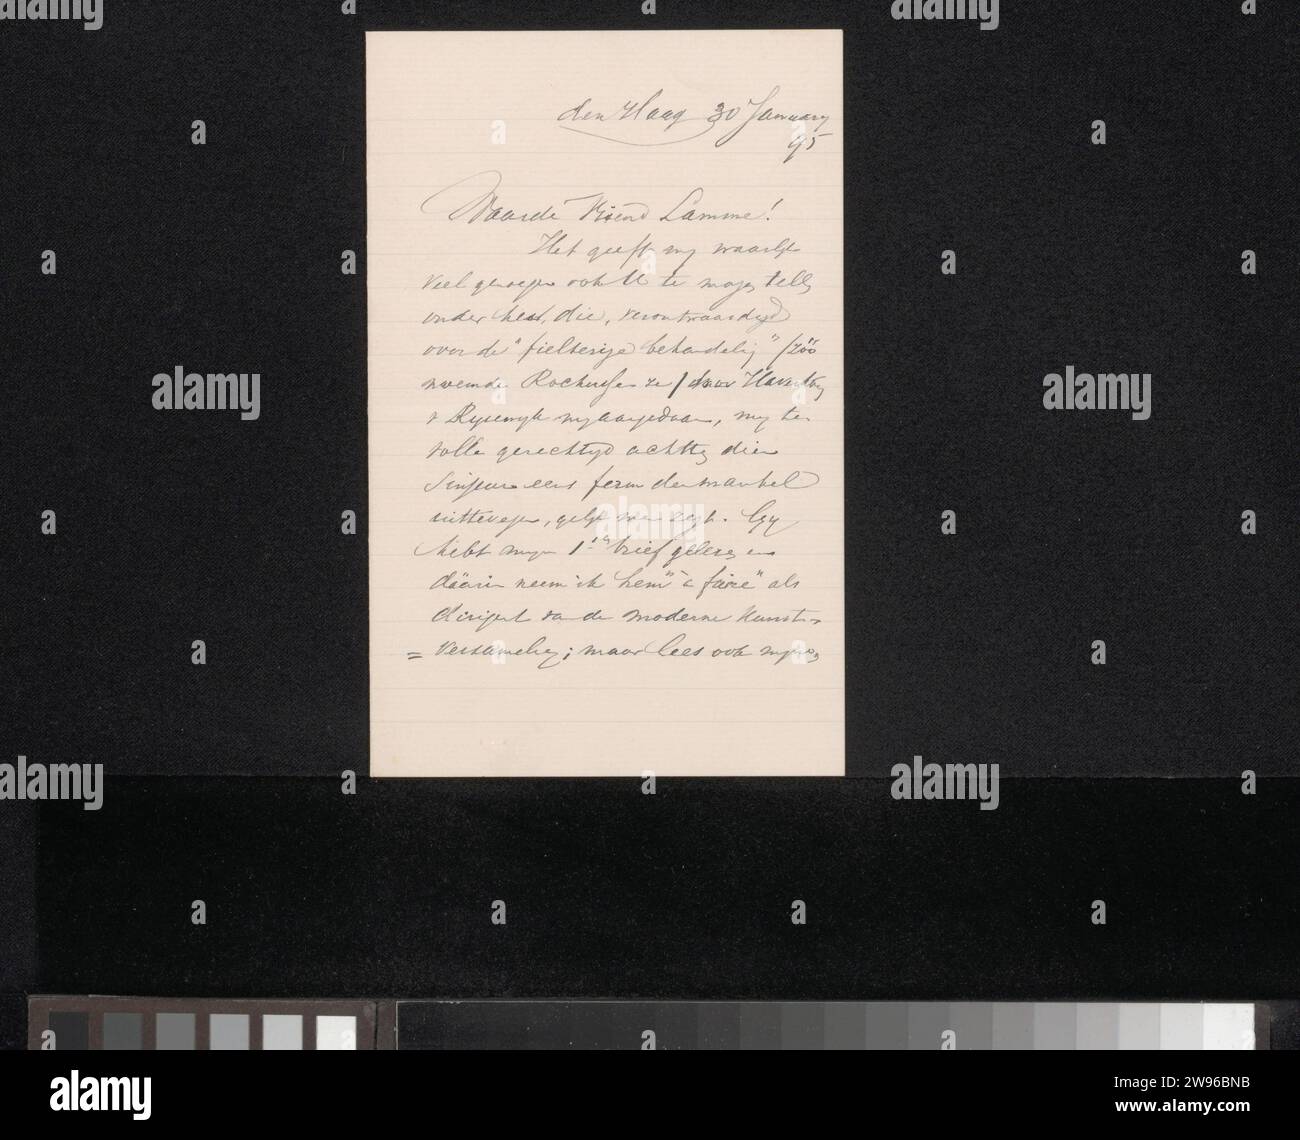 den Haag 30 January
95
Waarde Vriend Lamme!
Het geeft my waarlyk
veel genoegen ook U te mogen tellen
onder hen, die, verontwaardigd
over de "fielterige behandeling" /zóó
noemde Rochussen ze/ door Haverkorn
v Rysewyk my aangedaan, my ten
volle gerechtigd achtten dien
Sinjeur eens ferm den mantel
uittevegen, gelyk men zegt. Gy
hebt myn 1sten brief gelezen en
dáárin neem ik hem "à faire" als
dirigent van de moderne Kunst-
= verzameling; maar lees ook mynen
alamy
Image ID: 2W96BNB
www.alamy.com